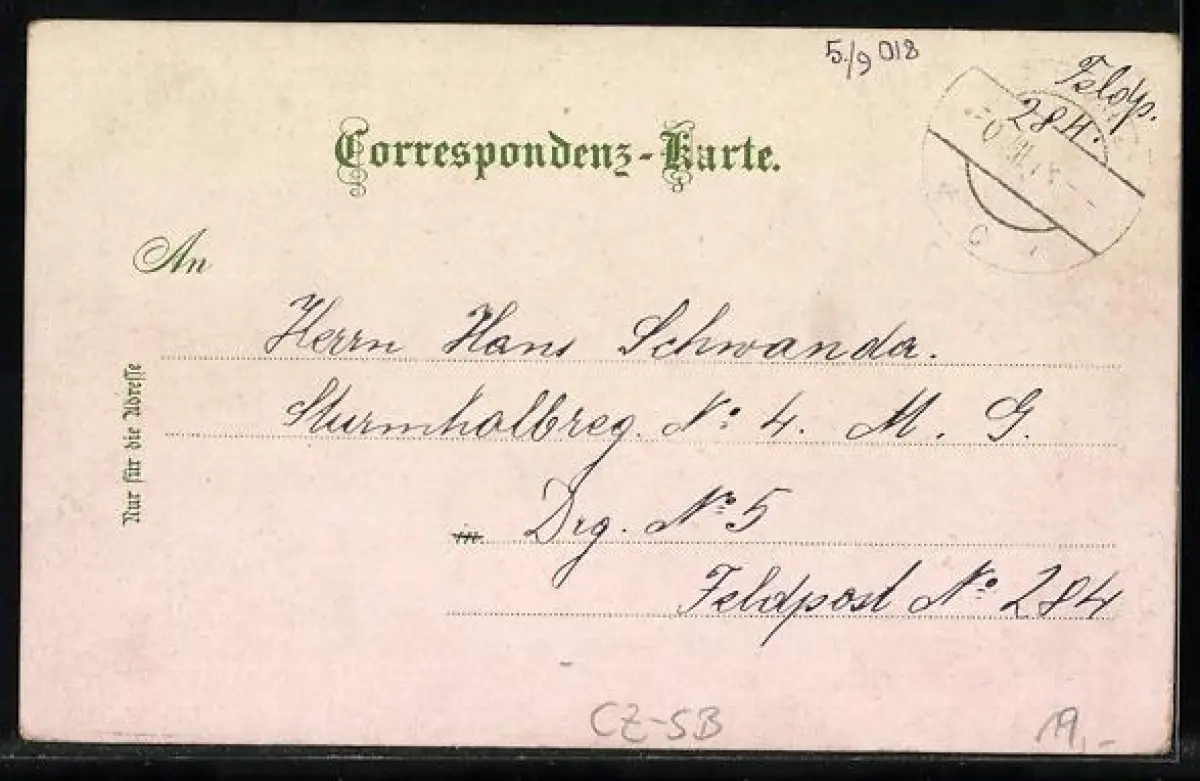 5./9 018
Feldp.
284.
Correspondenz-Karte.
An
Herrn Hans Schwanda.
Sturmhalbreg. No: 4. M. G.
Nur für die Adresse
in
Drg. No 5
Feldpost No: 284
CZ-SB
19,-